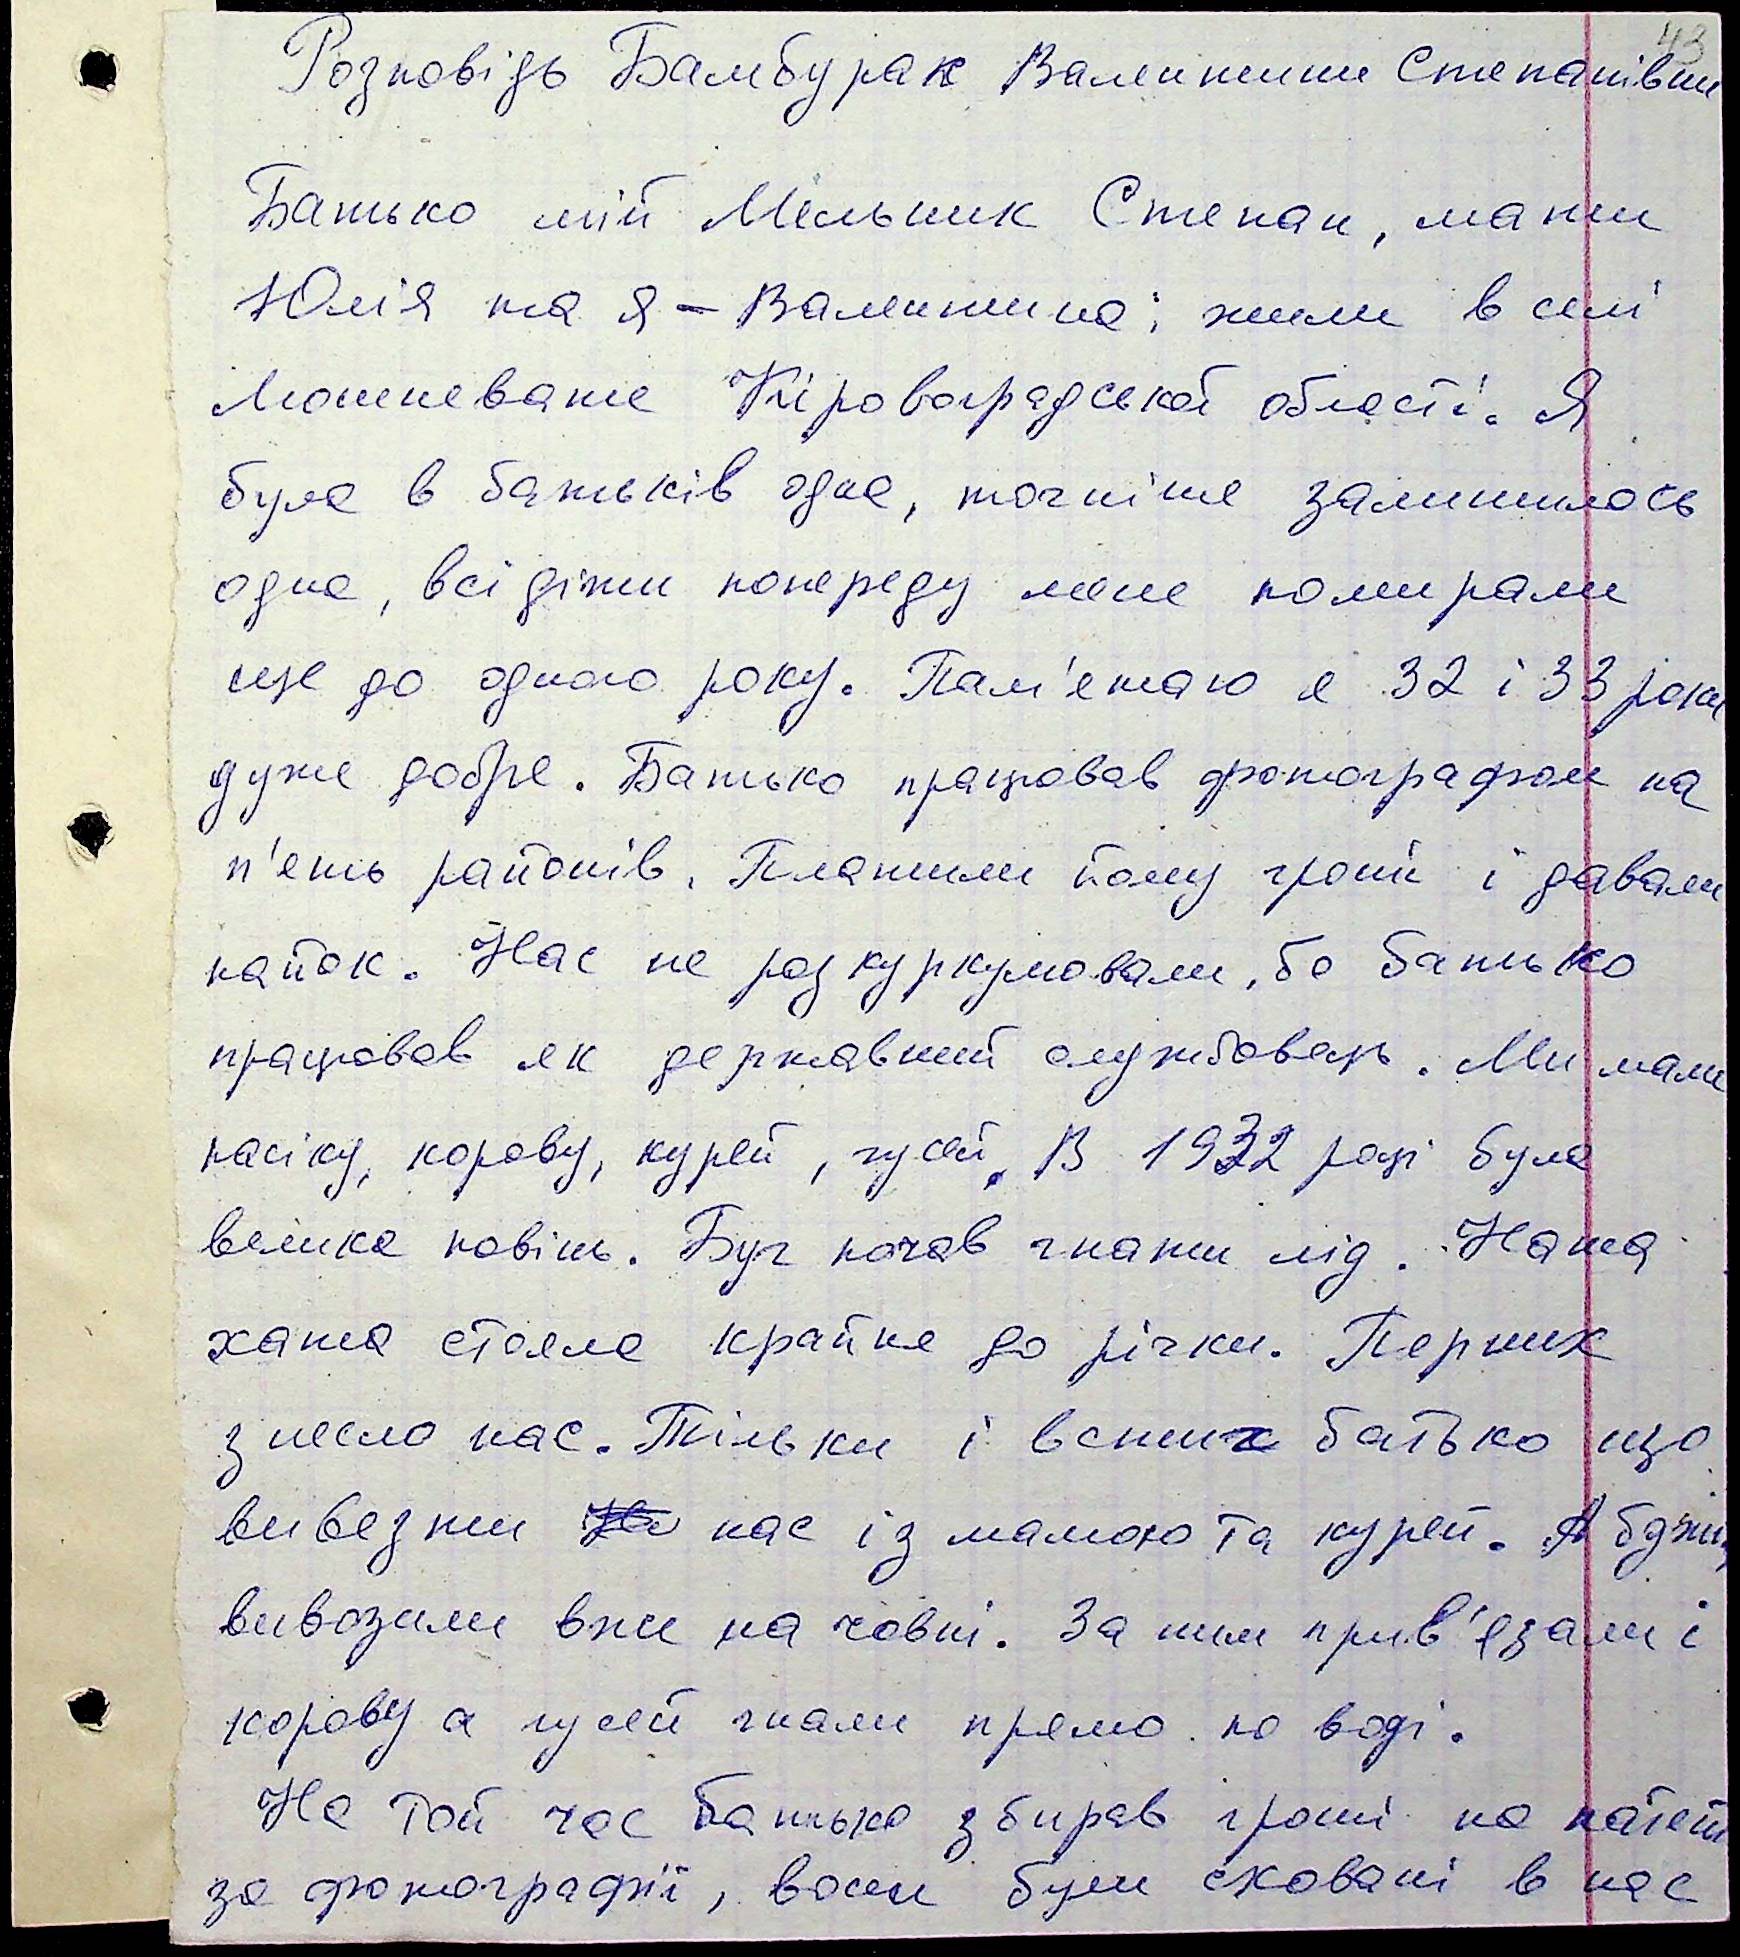 43
Розповідь Бамбурак Валентини Степанівни
Батько мій Мельник Степан, мати
Юлія та я – Валентина; жили в селі
Мощеневате Кіровоградської області. Я
була в батьків одна, точніше залишилась
одна, всі діти попереду мене помирали
ще до одного року. Пам'ятаю я 32 і 33 роки
дуже добре. Батько працював фотографом на
п'ять районів. Платили йому гроші і давали
пайок. Нас не розкуркулювали, бо батько
працював як державний службовець. Ми мали
пасіку, корову, курей, гусей. В 1932 році була
велика повінь. Буг почав гнати лід. Наша
хата стояла крайня до річки. Перших
знесло нас. Тільки і встиг батько що
вивезти нас із мамою та курей. А бджіл
вивозили вже на човні. За ним прив'язали і
корову а гусей гнали прямо по воді.
На той час батько збирав гроші на патент
за фотографії, вони були сховані в нас